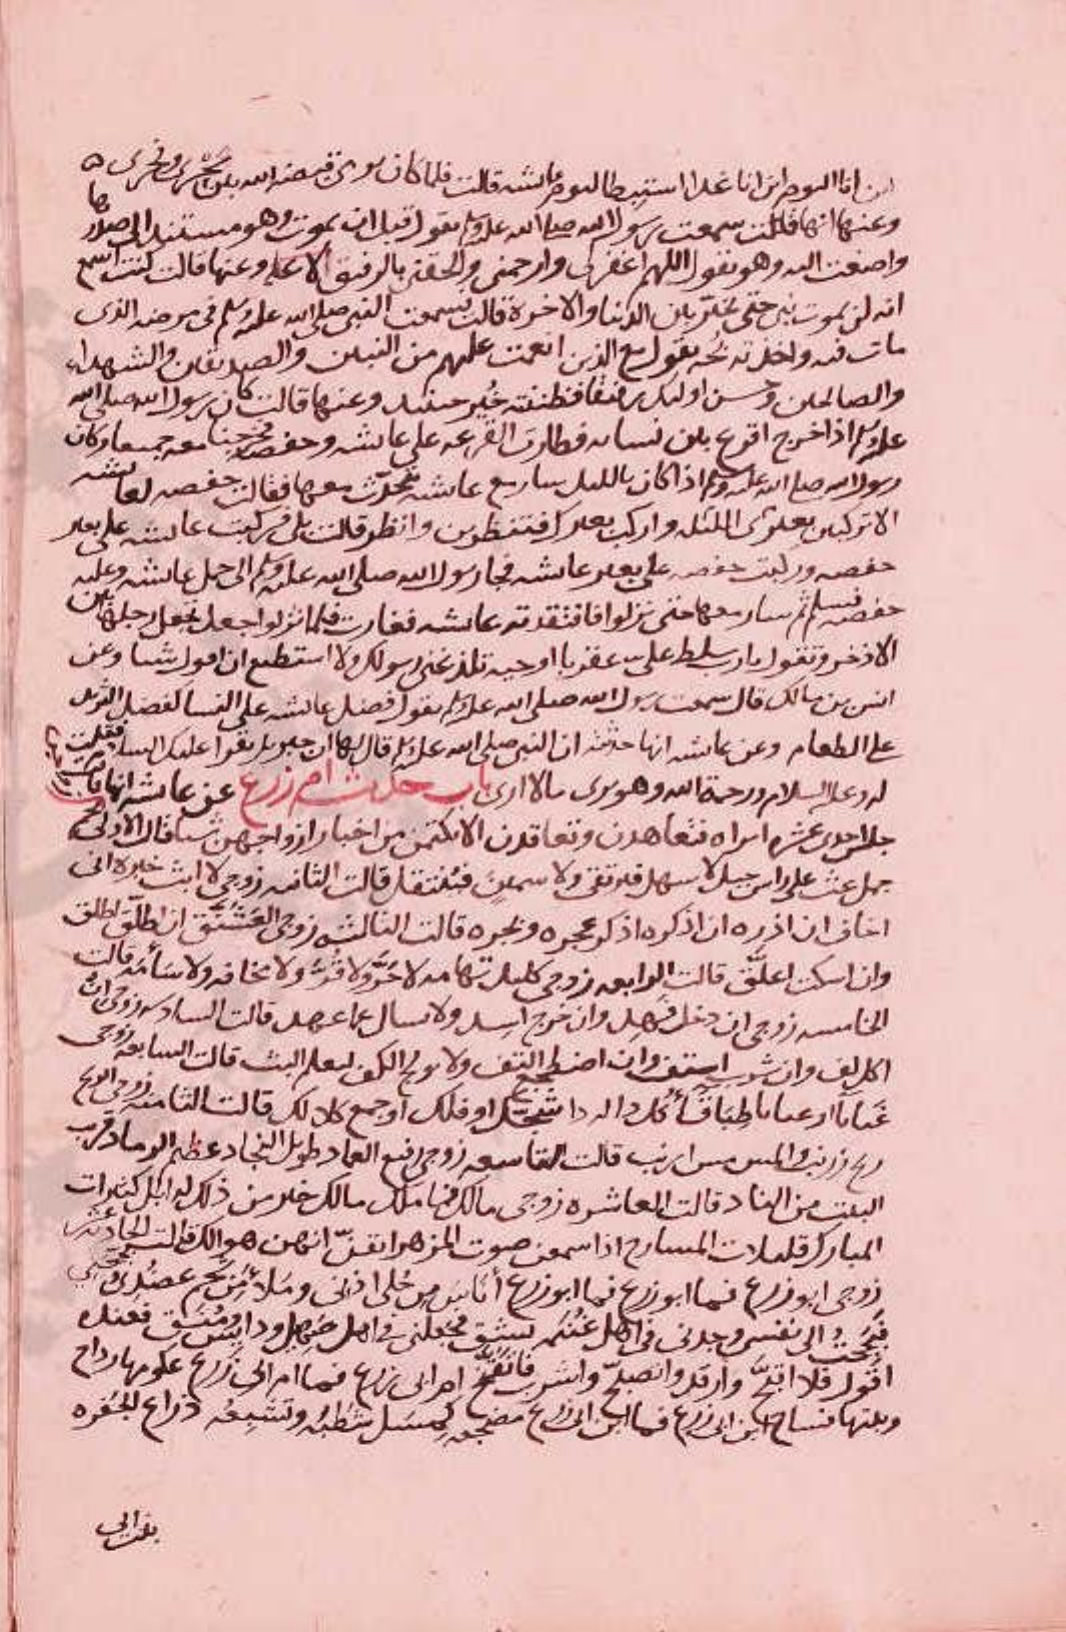 اين انا اليوم اين انا غدا استبطا ليوم عايشه قالت فلما كان يومي قبضه الله بين سحري ونحري
وعنها انها قالت سمعت رسول الله صلى الله عليه وسلم يقول قبل ان يموت وهو مستند الى صدرها
واصغت اليه وهو يقول اللهم اغفر لي وارحمني والحقني بالرفيق الاعلى وعنها قالت كنت اسمع
انه لن يموت نبي حتى يخير بين الدنيا والاخرة قالت سمعت النبي صلى الله عليه وسلم في مرضه الذي
مات فيه واخذته بحة يقول مع الذين انعمت عليهم من النبيين والصديقين والشهداء
والصالحين وحسن اوليك رفيقا فظننته خير حينئذ وعنها قالت كان رسول الله صلى الله
عليه وسلم اذا خرج اقرع بين نسايه فطارت القرعه على عايشه وحفصه فخرجتا معه جميعا وكان
رسول الله صلى الله عليه وسلم اذا كان بالليل سار مع عايشه يتحدث معها فقالت حفصه لعايشه
الا تركبين بعيري الليله واركب بعيرك فتنظرين وانظر قالت بلى فركبت عايشه على بعير
حفصه وركبت حفصه على بعير عايشه فجا رسول الله صلى الله عليه وسلم الى جمل عايشه وعليه
حفصه فسلم ثم سار معها حتى نزلوا فافتقدته عايشه فغارت فلما نزلوا جعلت تجعل رجلها بين
الاذخر وتقول يارب سلط علي عقربا او حية تلدغني رسولك ولا استطيع ان اقول شيا وعن
انس بن مالك قال سمعت رسول الله صلى الله عليه وسلم يقول فضل عايشه على النسا كفضل الثريد
على الطعام وعن عايشه انها حدثته ان النبي صلى الله عليه وسلم قال لها ان جبريل يقرا عليك السلام فقلت
له وعليه السلام ورحمة الله وهو يرى مالا ارى باب حديث ام زرع عن عايشه انها قالت
جلس احدى عشره امراه فتعاهدن وتعاقدن الا يكتمن من اخبار ازواجهن شيا قال الاولى زوجي لحم
جمل غث على راس جبل لا سهل فيرتقى ولا سمين فينتقل قالت الثانيه زوجي لا ابث خبره اني
اخاف ان لا اذره ان اذكره اذكر عجره وبجره قالت الثالثه زوجي العشنق ان انطق اطلق
وان اسكت اعلق قالت الرابعه زوجي كليل تهامه لا حر ولا قر ولا مخافه ولا سآمه قالت
الخامسه زوجي ان دخل فهد وان خرج اسد ولا يسال عما عهد قالت السادسه زوجي ان
اكل لف وان شرب اشتف وان اضطجع التف ولا يولج الكف ليعلم البث قالت السابعه زوجي
غياياء او عياياء طباقاء كل داء له داء شجك او فلك او جمع كلا لك قالت الثامنه زوجي الريح
ريح زرنب والمس مس ارنب قالت التاسعه زوجي رفيع العماد طويل النجاد عظيم الرماد قريب
البيت من الناد قالت العاشره زوجي مالك فما ملك مالك خير من ذلك له ابل كثيرات
المبارك قليلات المسارح اذا سمعن صوت المزهر ايقن انهن هوالك قالت الحاديه عشر
زوجي ابو زرع فما ابو زرع أناس من حلى اذني وملأ من شحم عضدي وبجحني
فبجحت الى نفسي وجدني في اهل غنيمه بشق فجعلني في اهل صهيل ودايس ومنق فعنده
اقول فلا اقبح وارقد واتصبح واشرب فاتقمح ام ابي زرع فما ام ابي زرع عكومها رداح
وبيتها فساح ابن ابي زرع فما ابن ابي زرع مضجعه كمسل شطبه وتشبعه ذراع الجفره
بنت ابي